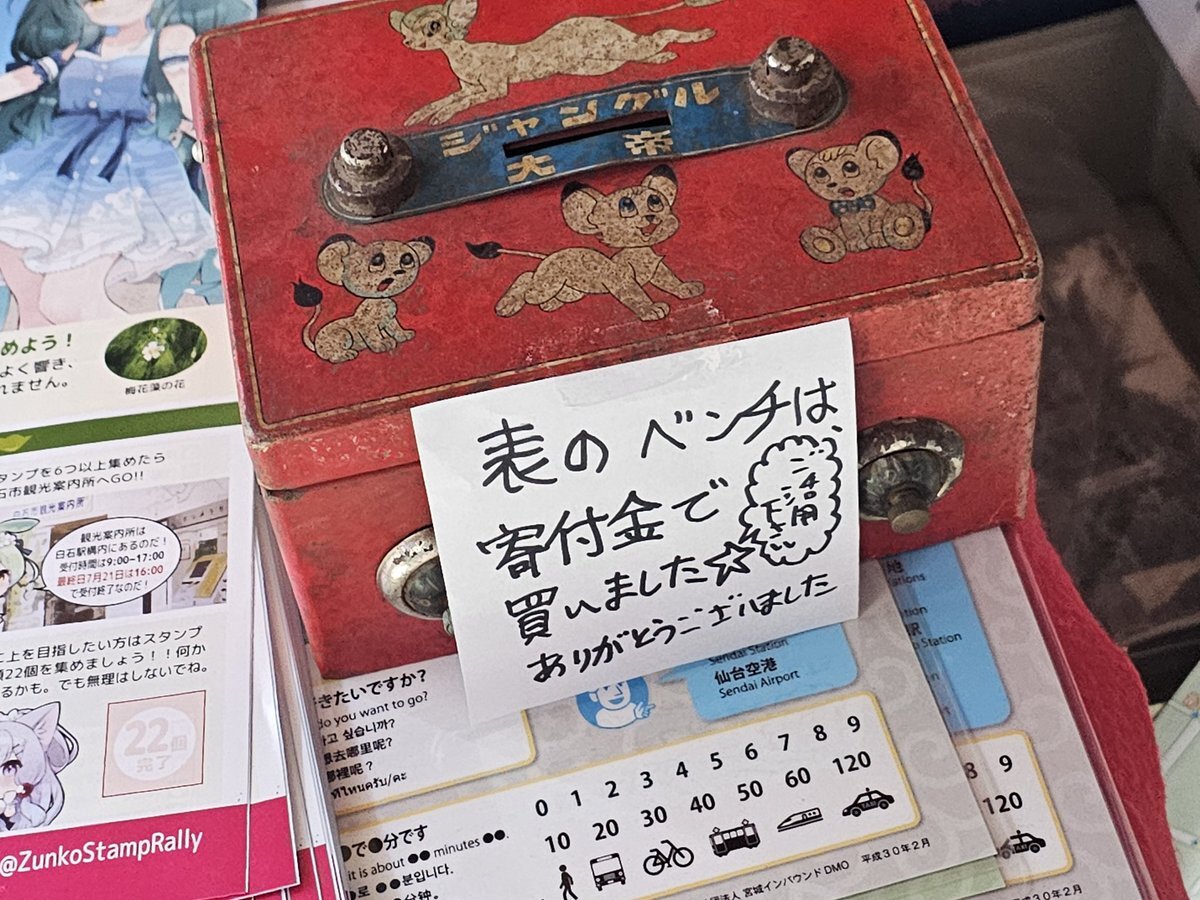 ジャングル
大帝
表のベンチは、
寄付金で
買いました☆
ありがとうございました
ご活用
下さい
めよう！
よく響き、
れません。
梅花藻の花
タンプを6つ以上集めたら
石市観光案内所へGO!!
白石市観光案内所
観光案内所は
白石駅構内にあるのだ！
受付時間は9:00~17:00
最終日7月21日は16:00
で受付終了なのだ！
上を目指したい方はスタンプ
22個を集めましょう！！何か
るかも。でも無理はしないでね。
22個
完了
@ZunkoStampRally
きたいですか?
do you want to go?
고 싶습니까?
想去哪里呢?
哪裡呢？
ที่ไหนครับ/คะ
Sendai Station
仙台空港
Sendai Airport
0 1 2 3 4 5 6 7 8 9
10 20 30 40 50 60 120
TAXI
●で●分です
it is about ●● minutes ●●.
●로 ●●분입니다.
分钟。
団法人 宮城インバウンドDMO 平成30年2月
地
ations
ation
駅
Station
8 9
120
TAXI
30年2月